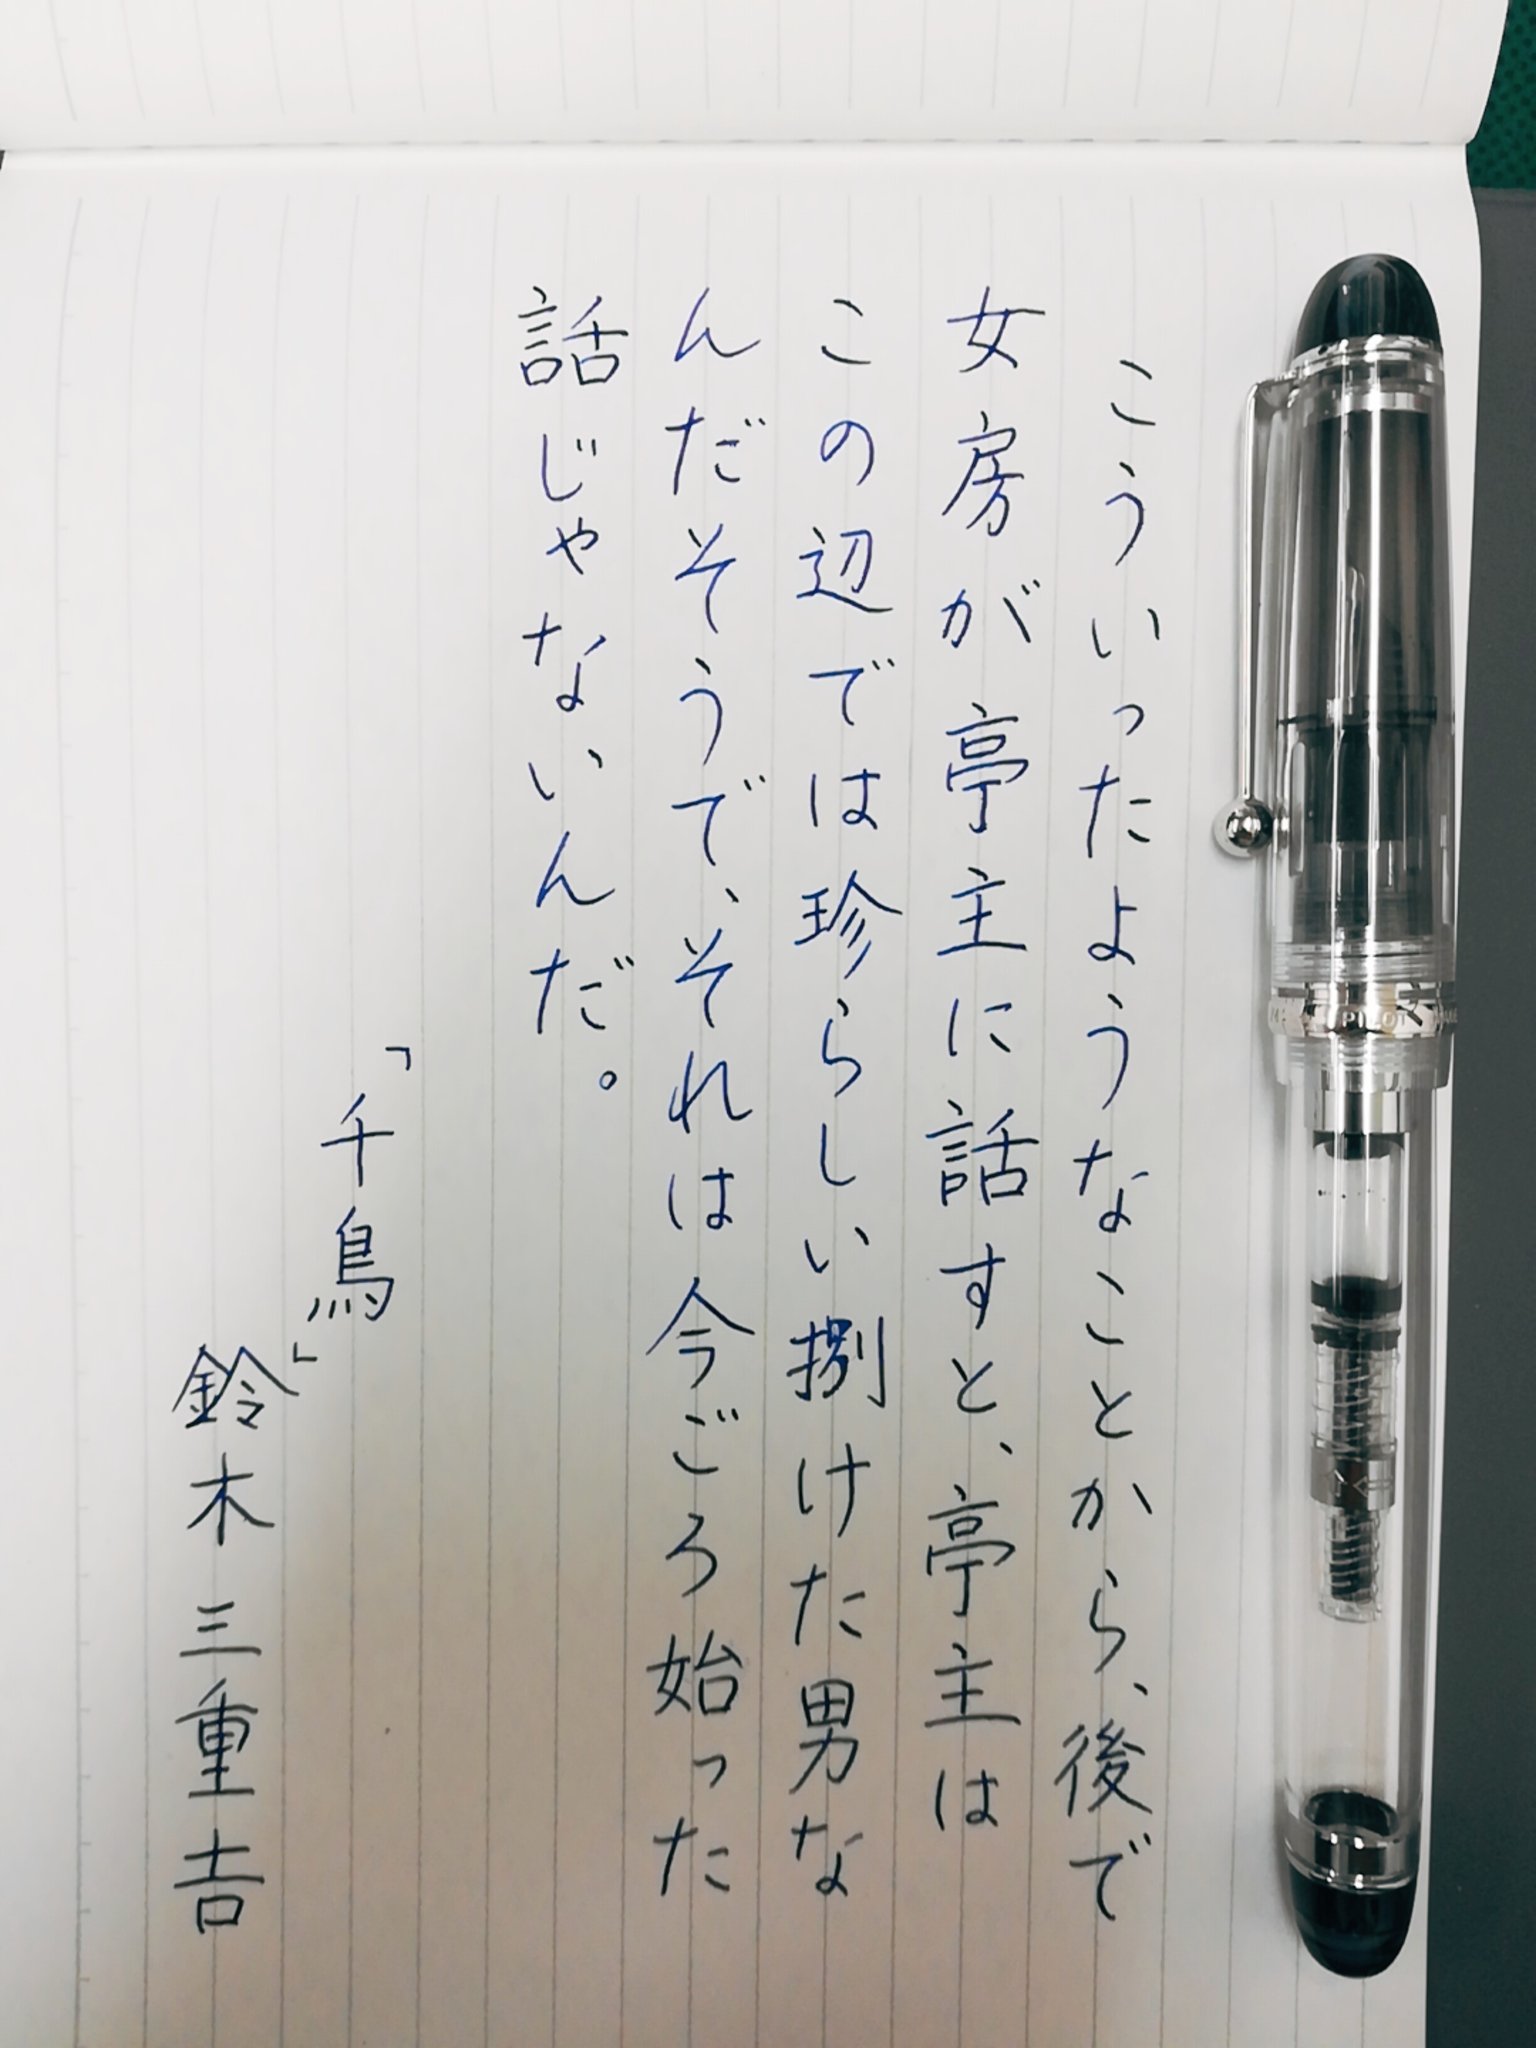 こういったようなことから、後で
女房が亭主に話すと、亭主は
この辺では珍らしい捌けた男な
んだそうで、それは今ごろ始った
話じゃないんだ。
「千鳥」
鈴木三重吉
PILOT